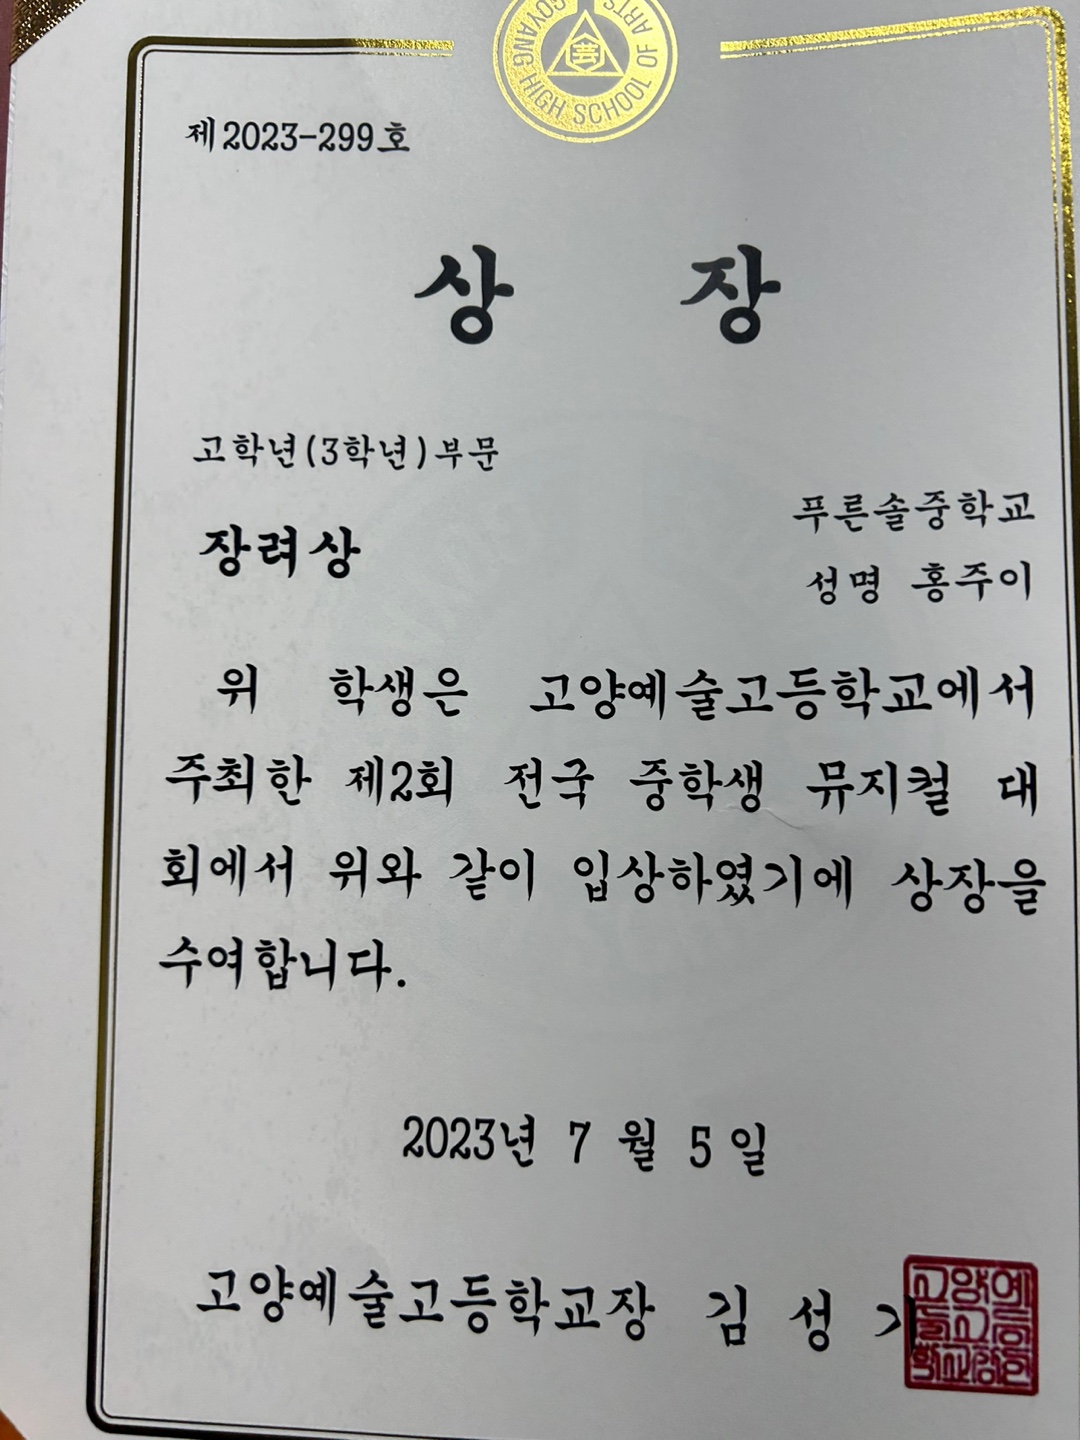 GOYANG HIGH SCHOOL OF ARTS
제2023-299호
상 장
고학년(3학년)부문
푸른솔중학교
장려상
성명 홍주이
위 학생은 고양예술고등학교에서
주최한 제2회 전국 중학생 뮤지컬 대
회에서 위와 같이 입상하였기에 상장을
수여합니다.
2023년 7 월 5 일
고양예술고등학교장 김 성 기